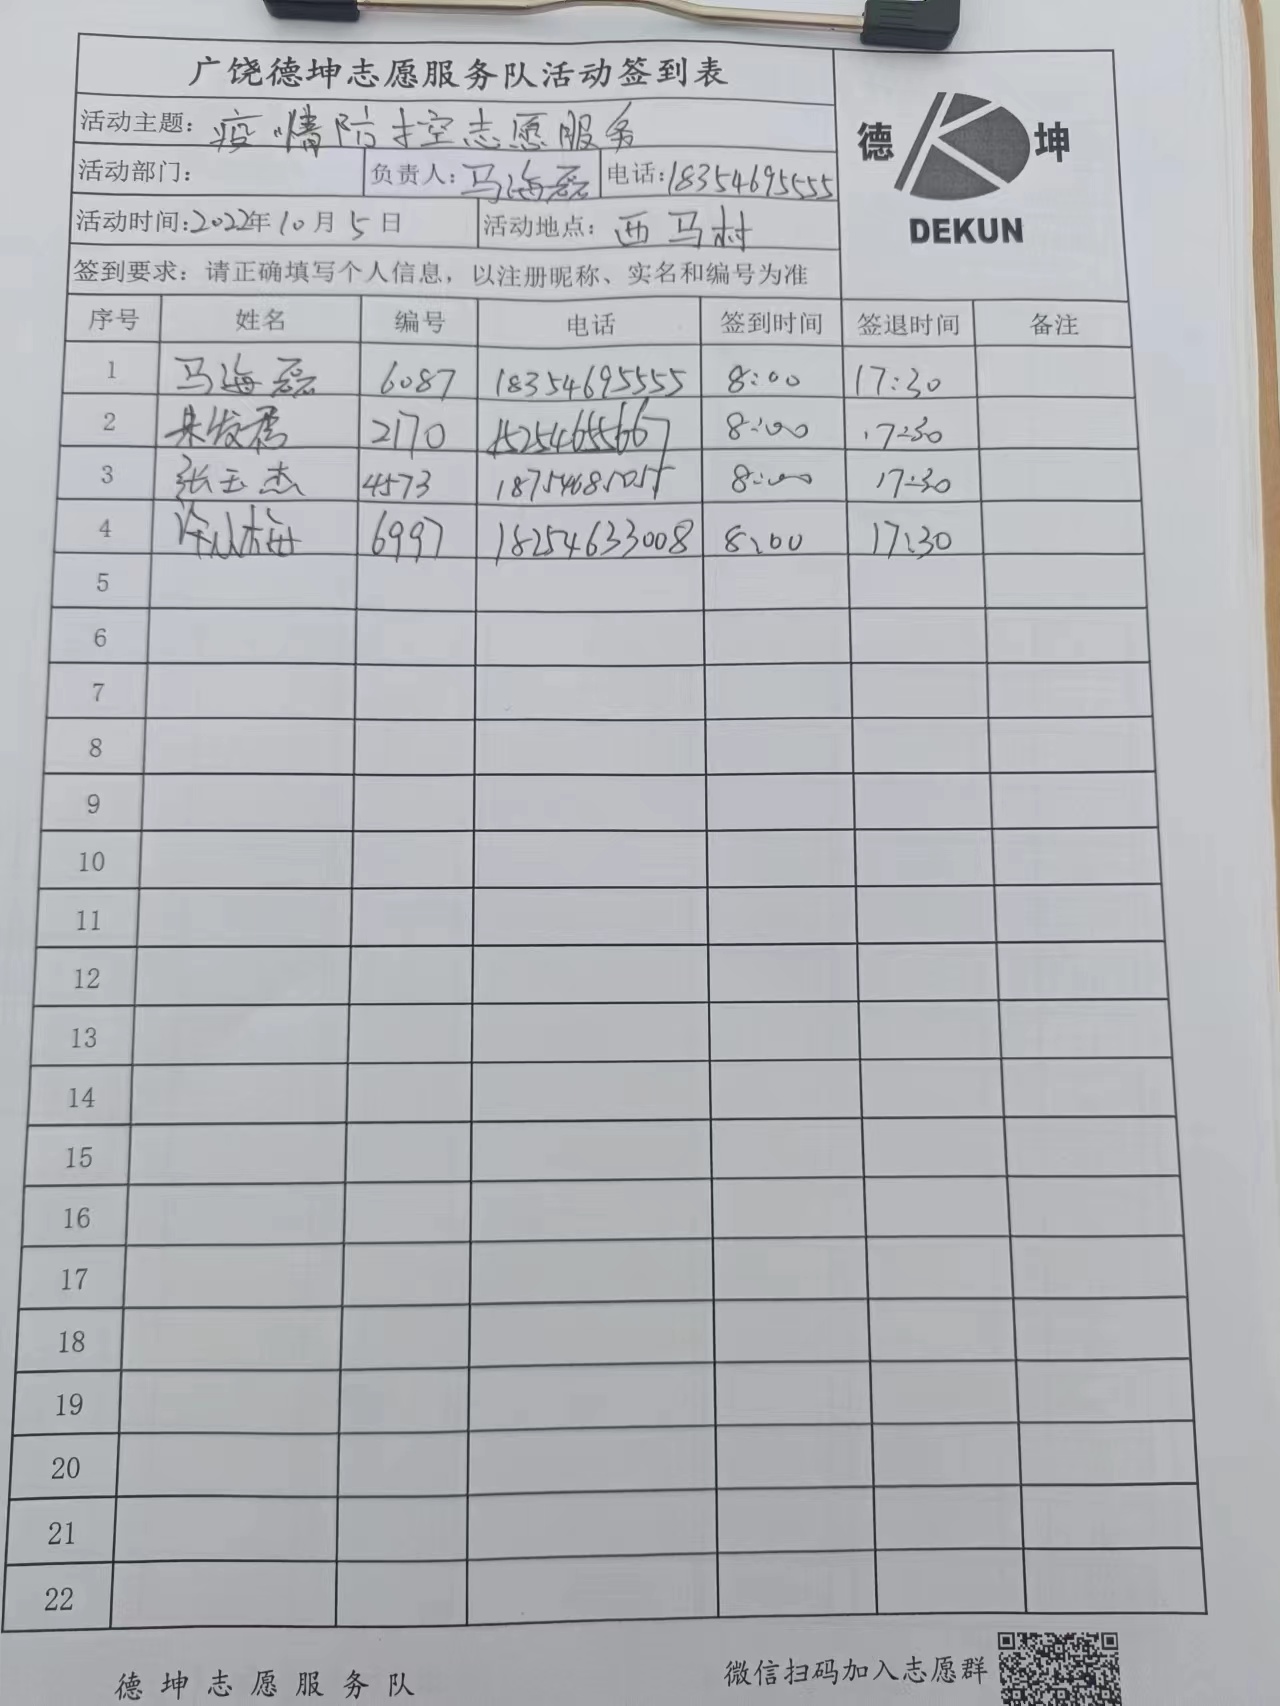 广饶德坤志愿服务队活动签到表
活动主题：疫情防控志愿服务
德 坤
DEKUN
活动部门： 负责人：马海磊 电话：18354695555
活动时间：2022年10月5日 活动地点：西马村
签到要求：请正确填写个人信息，以注册昵称、实名和编号为准
序号 姓名 编号 电话 签到时间 签退时间 备注
1 马海磊 6087 18354695555 8:00 17:30
2 2170 15254655667 8:00 17:30
3 张玉杰 4573 8:00 17:30
4 6997 18254633008 8:00 17:30
5
6
7
8
9
10
11
12
13
14
15
16
17
18
19
20
21
22
德坤志愿服务队 微信扫码加入志愿群